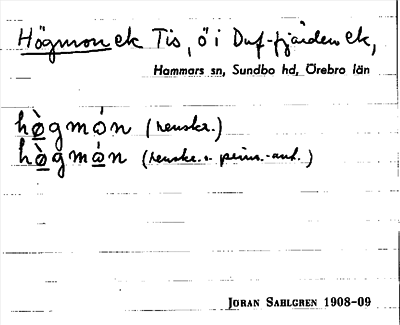 Högmon ek Tis, ö i Duf-fjärden ek,
Hammars sn, Sundbo hd, Örebro län
hògmón (renskr.)
hògmán (renskr. o. prim.-ant.)
JORAN SAHLGREN 1908-09